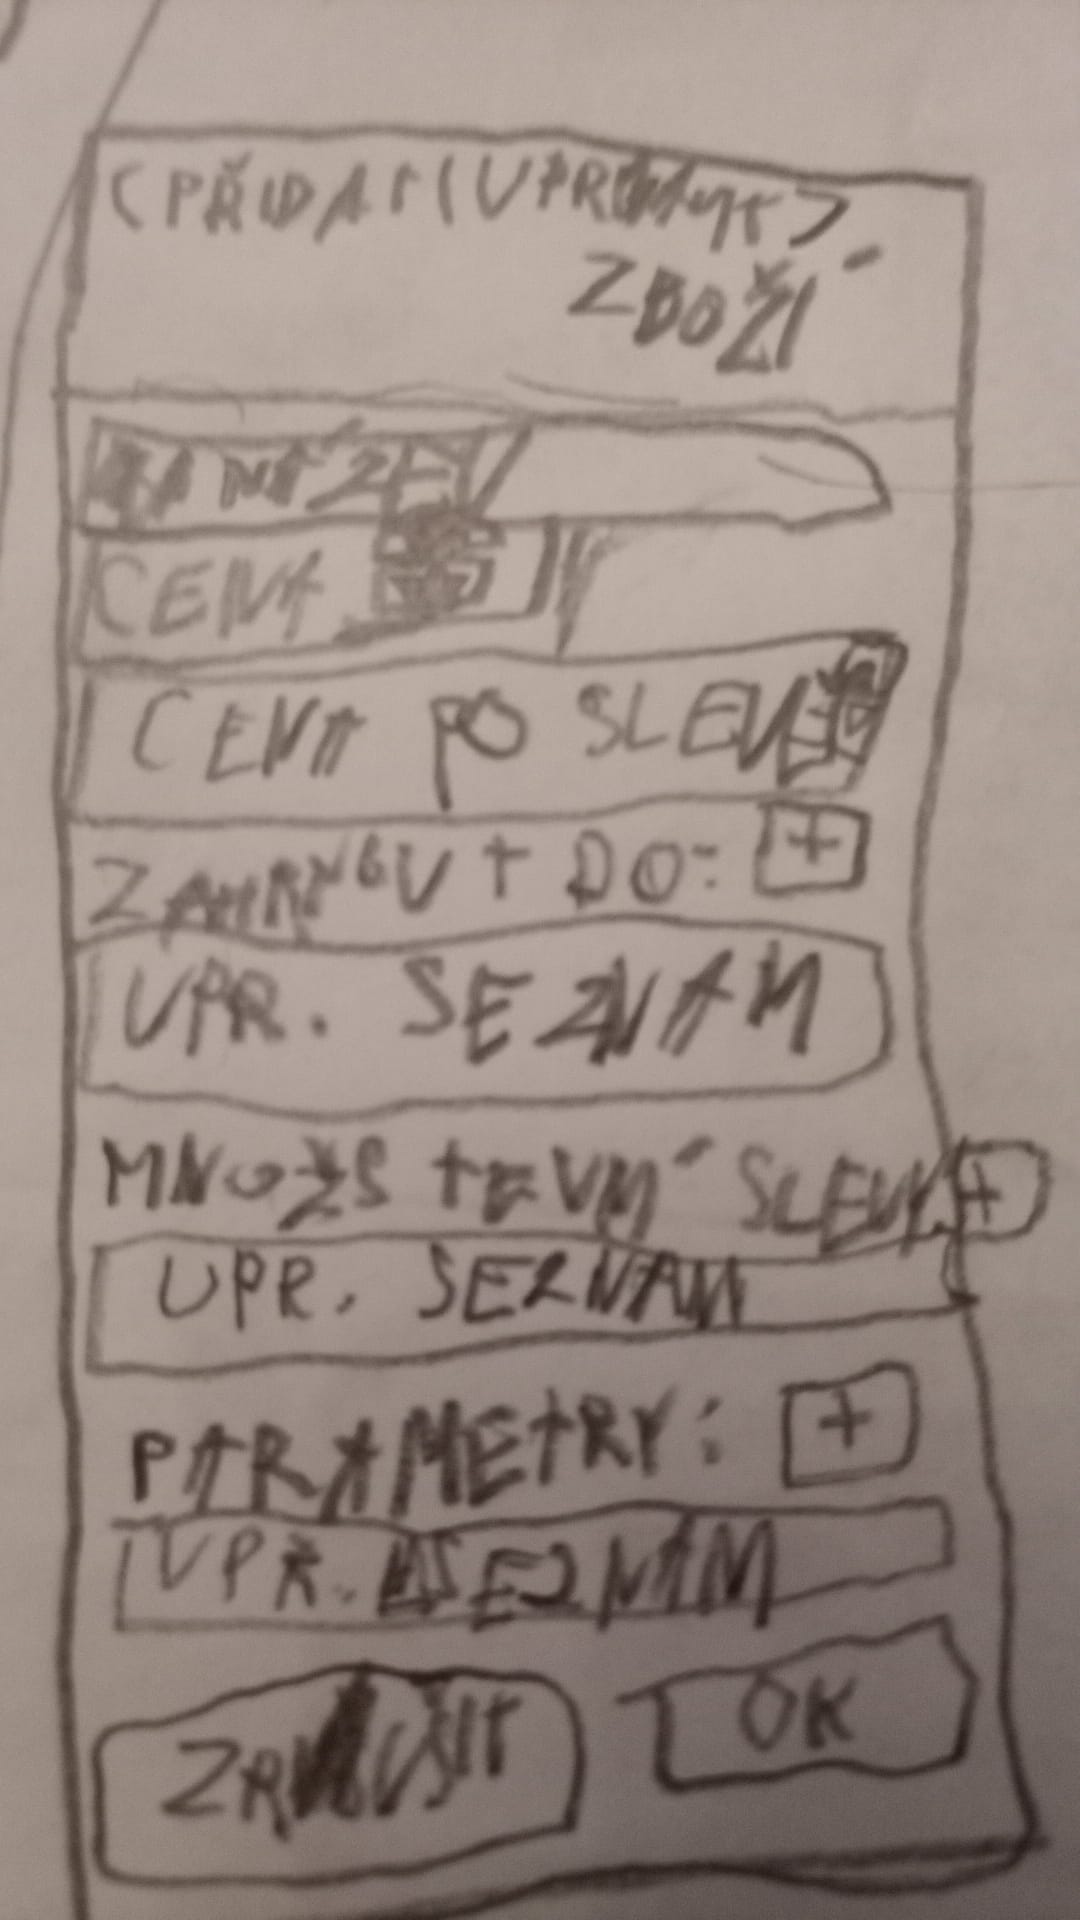 (PŘIDAT(UPRAVIT)
ZBOŽÍ
NÁZEV
CENA
CENA PO SLEVĚ
ZAHRNOUT DO: +
UPR. SEZNAM
MNOŽSTEVNÍ SLEVY +
UPR. SEZNAM
PARAMETRY: +
UPR. SEZNAM
ZRUŠIT OK